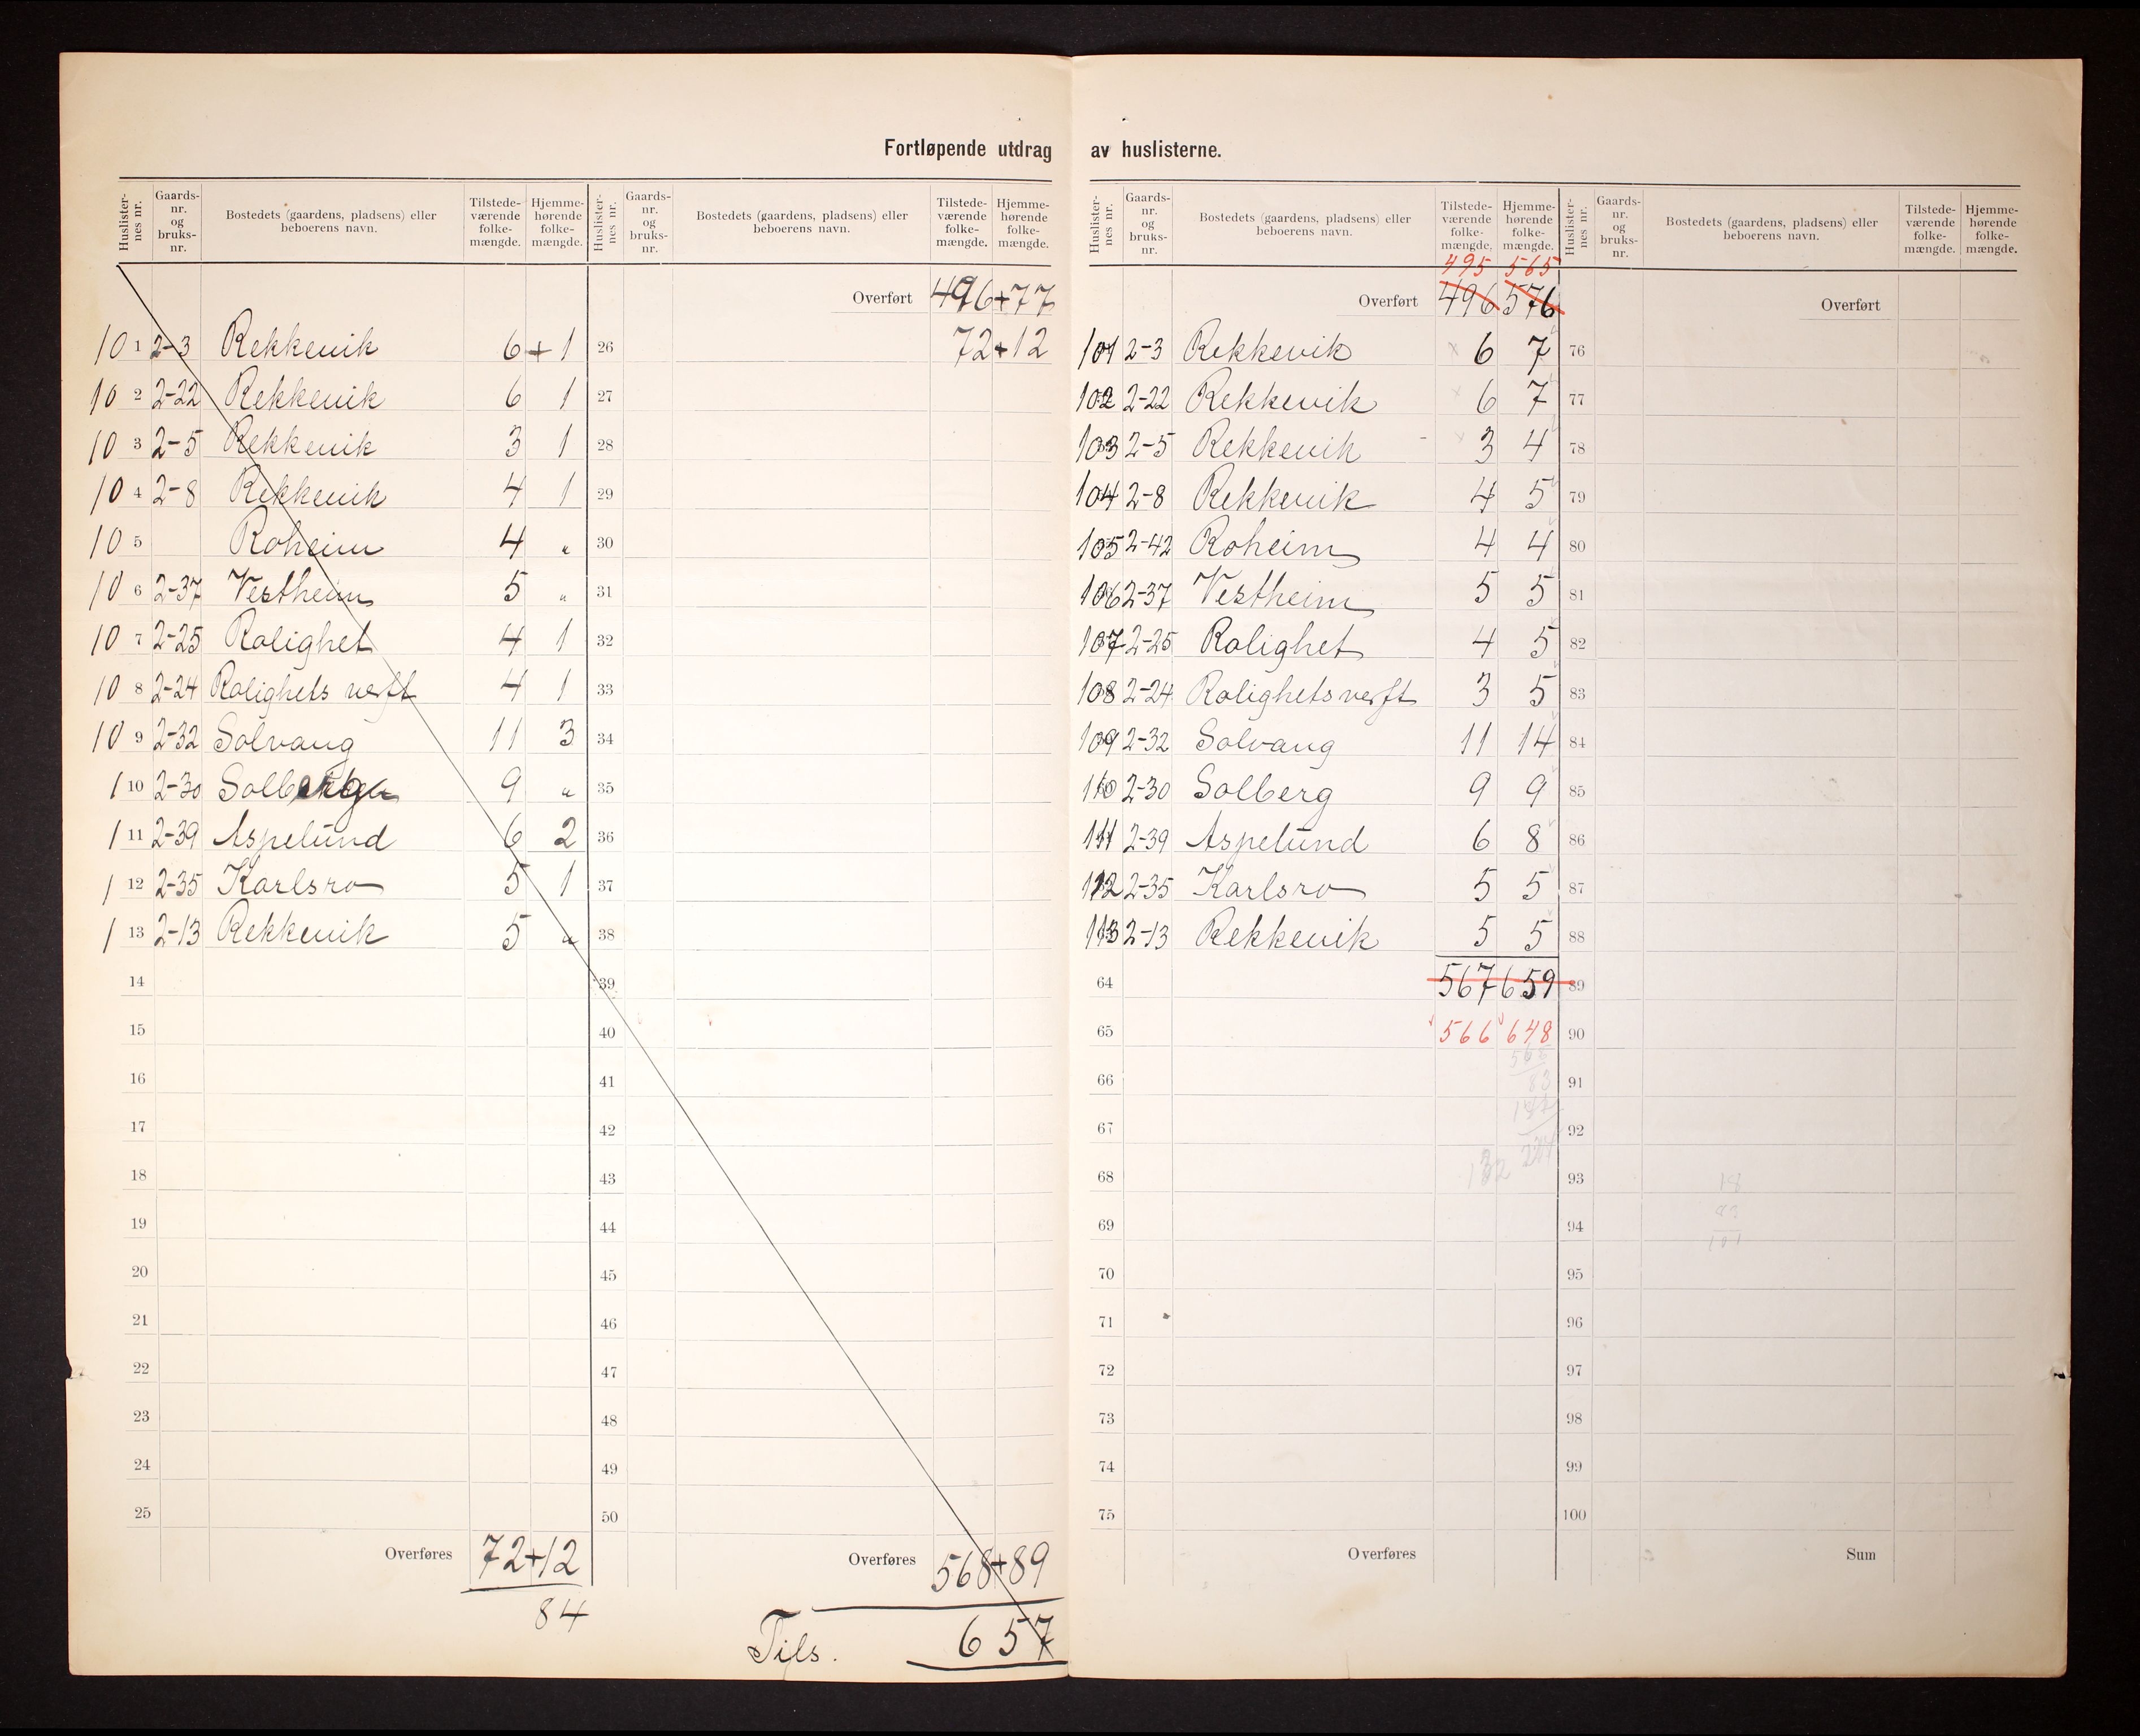 Fortløpende utdrag av huslisterne.
Huslister-nes nr. Gaards-nr. og bruks-nr. Bostedets (gaardens, pladsens) eller beboerens navn. Tilstede-værende folke-mængde. Hjemme-hørende folke-mængde. Huslister-nes nr. Gaards-nr. og bruks-nr. Bostedets (gaardens, pladsens) eller beboerens navn. Tilstede-værende folke-mængde. Hjemme-hørende folke-mængde.
Overført 496+77
101 2-3 Rekkevik 6+1 26 72+12
102 2-22 Rekkevik 6 1 27
103 2-5 Rekkevik 3 1 28
104 2-8 Rekkevik 4 1 29
105 Roheim 4 " 30
106 2-37 Vestheim 5 " 31
107 2-25 Rolighet 4 1 32
108 2-24 Rolighets verft 4 1 33
109 2-32 Solvang 11 3 34
110 2-30 Solberg 9 " 35
111 2-39 Aspelund 6 2 36
112 2-35 Karlsro 5 1 37
113 2-13 Rekkevik 5 " 38
14 39
15 40
16 41
17 42
18 43
19 44
20 45
21 46
22 47
23 48
24 49
25 50
Overføres 72+12 Overføres 568+89
84
Tils. 657
Huslister-nes nr. Gaards-nr. og bruks-nr. Bostedets (gaardens, pladsens) eller beboerens navn. Tilstede-værende folke-mængde. Hjemme-hørende folke-mængde. Huslister-nes nr. Gaards-nr. og bruks-nr. Bostedets (gaardens, pladsens) eller beboerens navn. Tilstede-værende folke-mængde. Hjemme-hørende folke-mængde.
495 565
Overført 496 576 Overført
101 2-3 Rekkevik 6 7 76
102 2-22 Rekkevik 6 7 77
103 2-5 Rekkevik 3 4 78
104 2-8 Rekkevik 4 5 79
105 2-42 Roheim 4 4 80
106 2-37 Vestheim 5 5 81
107 2-25 Rolighet 4 5 82
108 2-24 Rolighets verft 3 5 83
109 2-32 Solvang 11 14 84
110 2-30 Solberg 9 9 85
111 2-39 Aspelund 6 8 86
112 2-35 Karlsro 5 5 87
113 2-13 Rekkevik 5 5 88
64 567 659 89
65 566 648 90
66 565 91
83
67 92
68 132 93
69 94
70 95
71 96
72 97
73 98
74 99
75 100
Overføres Sum